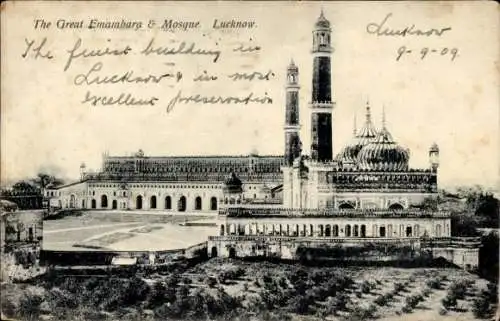 The Great Emambara & Mosque. Lucknow.
Lucknow
9-9-09
The finest building in
Lucknow & in most
excellent preservation